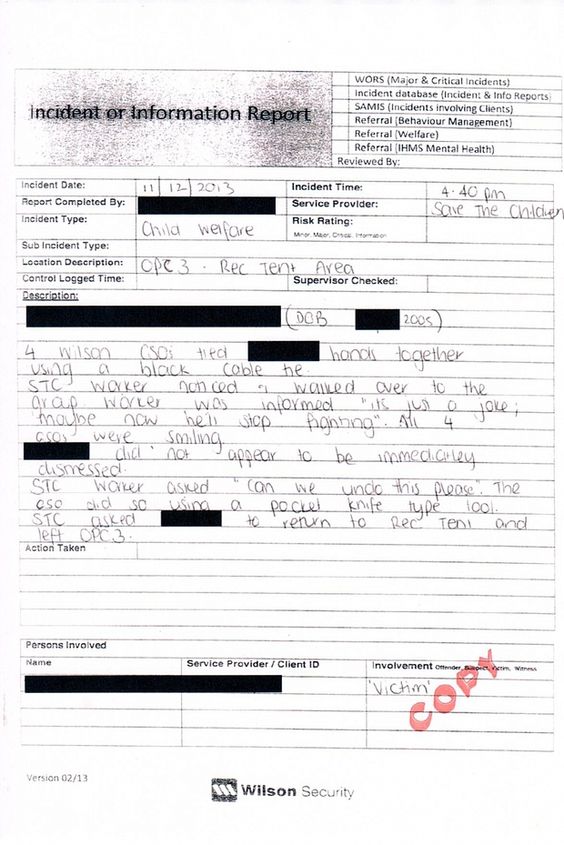 Incident or Information Report
WORS (Major & Critical Incidents)
Incident database (Incident & Info Reports)
SAMIS (Incidents involving Clients)
Referral (Behaviour Management)
Referral (Welfare)
Referral (IHMS Mental Health)
Reviewed By:
Incident Date: 11/12/2013 Incident Time: 4.40 pm
Report Completed By: Service Provider: Save The Children
Incident Type: Child Welfare Risk Rating:
Minor, Major, Critical, Information
Sub Incident Type:
Location Description: OPC 3. Rec Tent Area
Control Logged Time: Supervisor Checked:
Description:
(DOB 2005)
4 Wilson CSOs tied hands together
using a black cable tie.
STC worker noticed & walked over to the
group. Worker was informed "its just a joke;
'maybe now he'll stop fighting". All 4
CSOs were smiling.
did not appear to be immediatley
distressed.
STC worker asked "Can we undo this please". The
CSO did so using a pocket knife type tool.
STC asked to return to Rec Tent and
left OPC3.
Action Taken
Persons Involved
Name Service Provider / Client ID Involvement Offender, Suspect, Victim, Witness
'Victim'
COPY
Version 02/13
Wilson Security